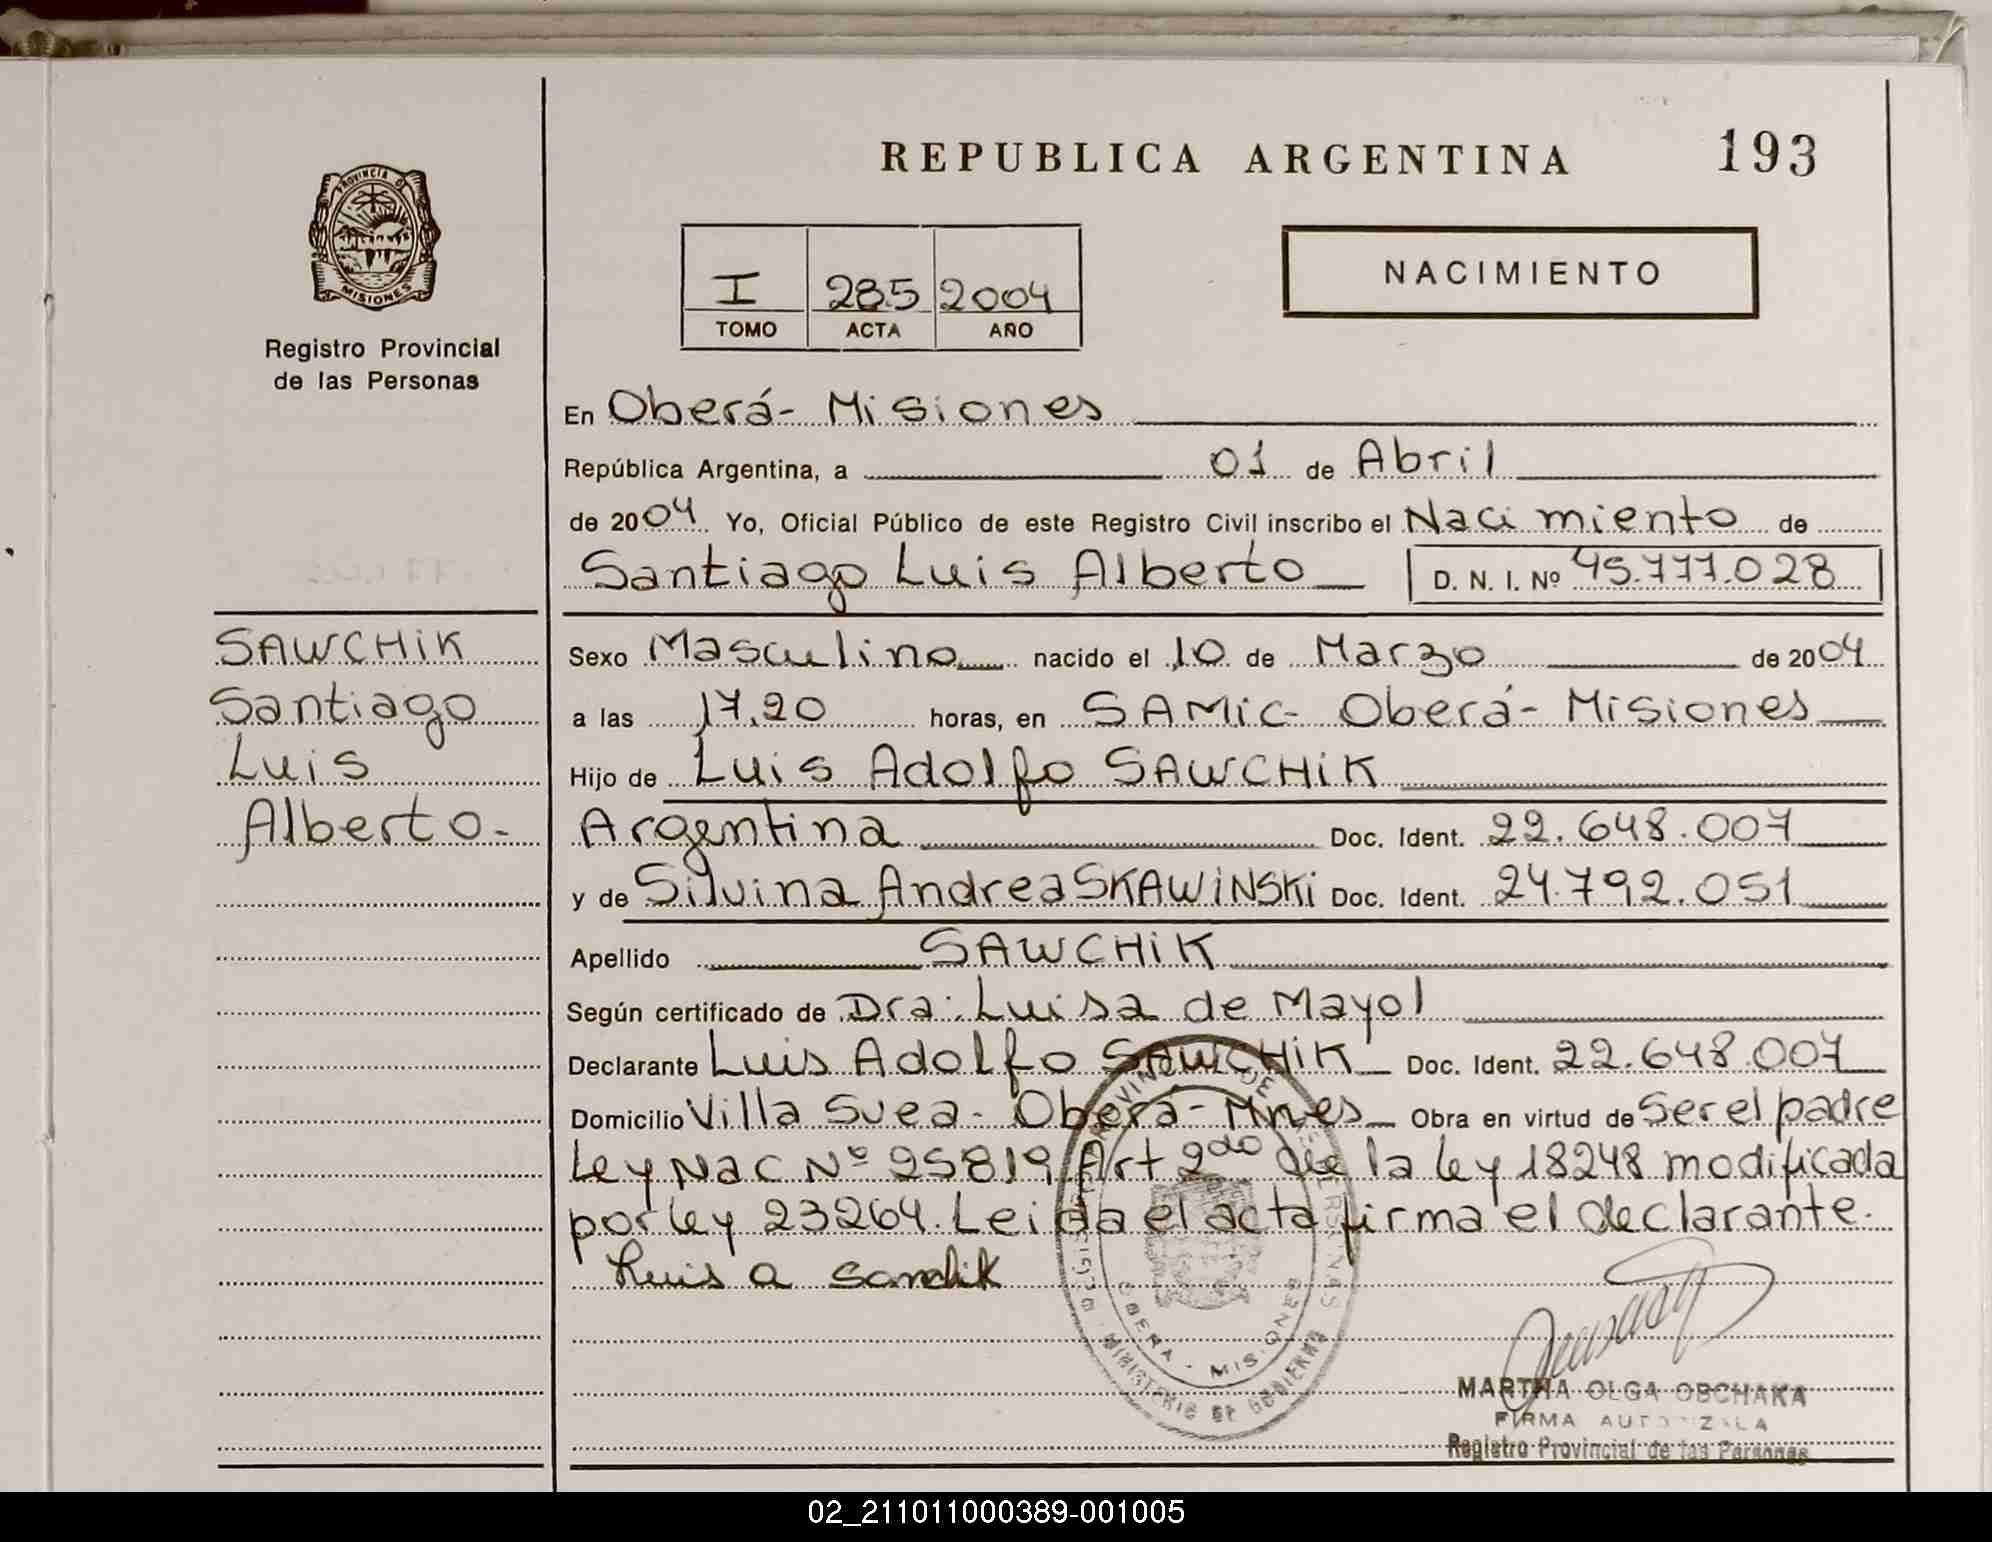 REPUBLICA ARGENTINA 193
PROVINCIA DE
MISIONES
Registro Provincial
de las Personas
I 285 2004
TOMO ACTA AÑO
NACIMIENTO
En Oberá- Misiones
República Argentina, a 01 de Abril
de 2004 Yo, Oficial Público de este Registro Civil inscribo el Nacimiento de
Santiago Luis Alberto D. N. I. Nº 45.777.028
SAWCHIK
Santiago
Luis
Alberto-
Sexo Masculino nacido el 10 de Marzo de 2004
a las 17,20 horas, en SAMic- Oberá- Misiones
Hijo de Luis Adolfo SAWCHIK
Argentina Doc. Ident. 22.648.007
y de Silvina Andrea SKAWINSKI Doc. Ident. 24.792.051
Apellido SAWCHIK
Según certificado de Dra. Luisa de Mayol
Declarante Luis Adolfo SAWCHIK Doc. Ident. 22.648.007
Domicilio Villa Svea- Oberá- Mnes Obra en virtud de Ser el padre
Ley Nac Nº 25819 Art 2do de la ley 18248 modificada
por ley 23264. Leida el acta firma el declarante.
Luis a
OBERA - MISIONES
MINISTERIO DE GOBIERNO
MARTHA OLGA OBCHAKA
FIRMA AUTORIZADA
Registro Provincial de las Personas
02_211011000389-001005